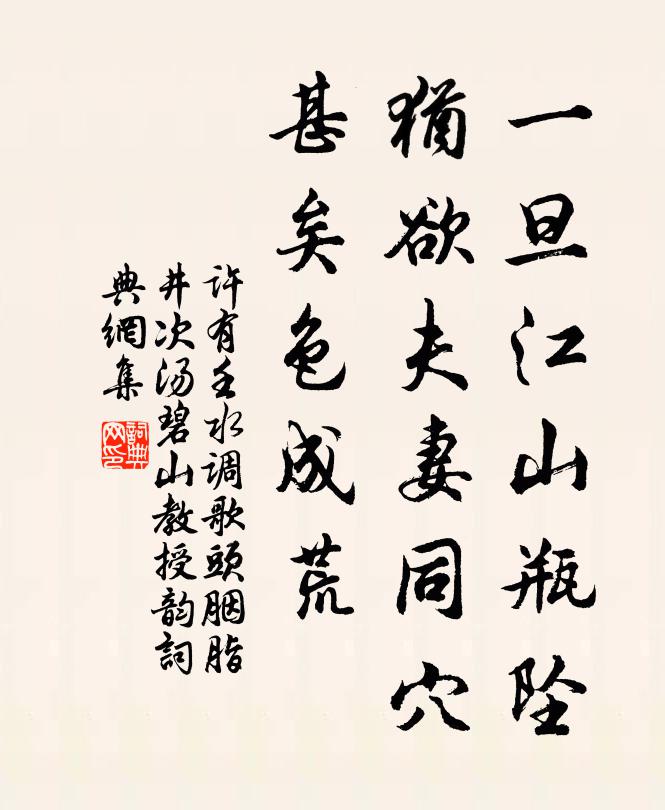 一旦江山瓶坠
猶欲夫妻同穴
甚矣色成荒
许有壬水调歌頭胭脂
井次汤碧山教授韵詞
典網集
詞典網印